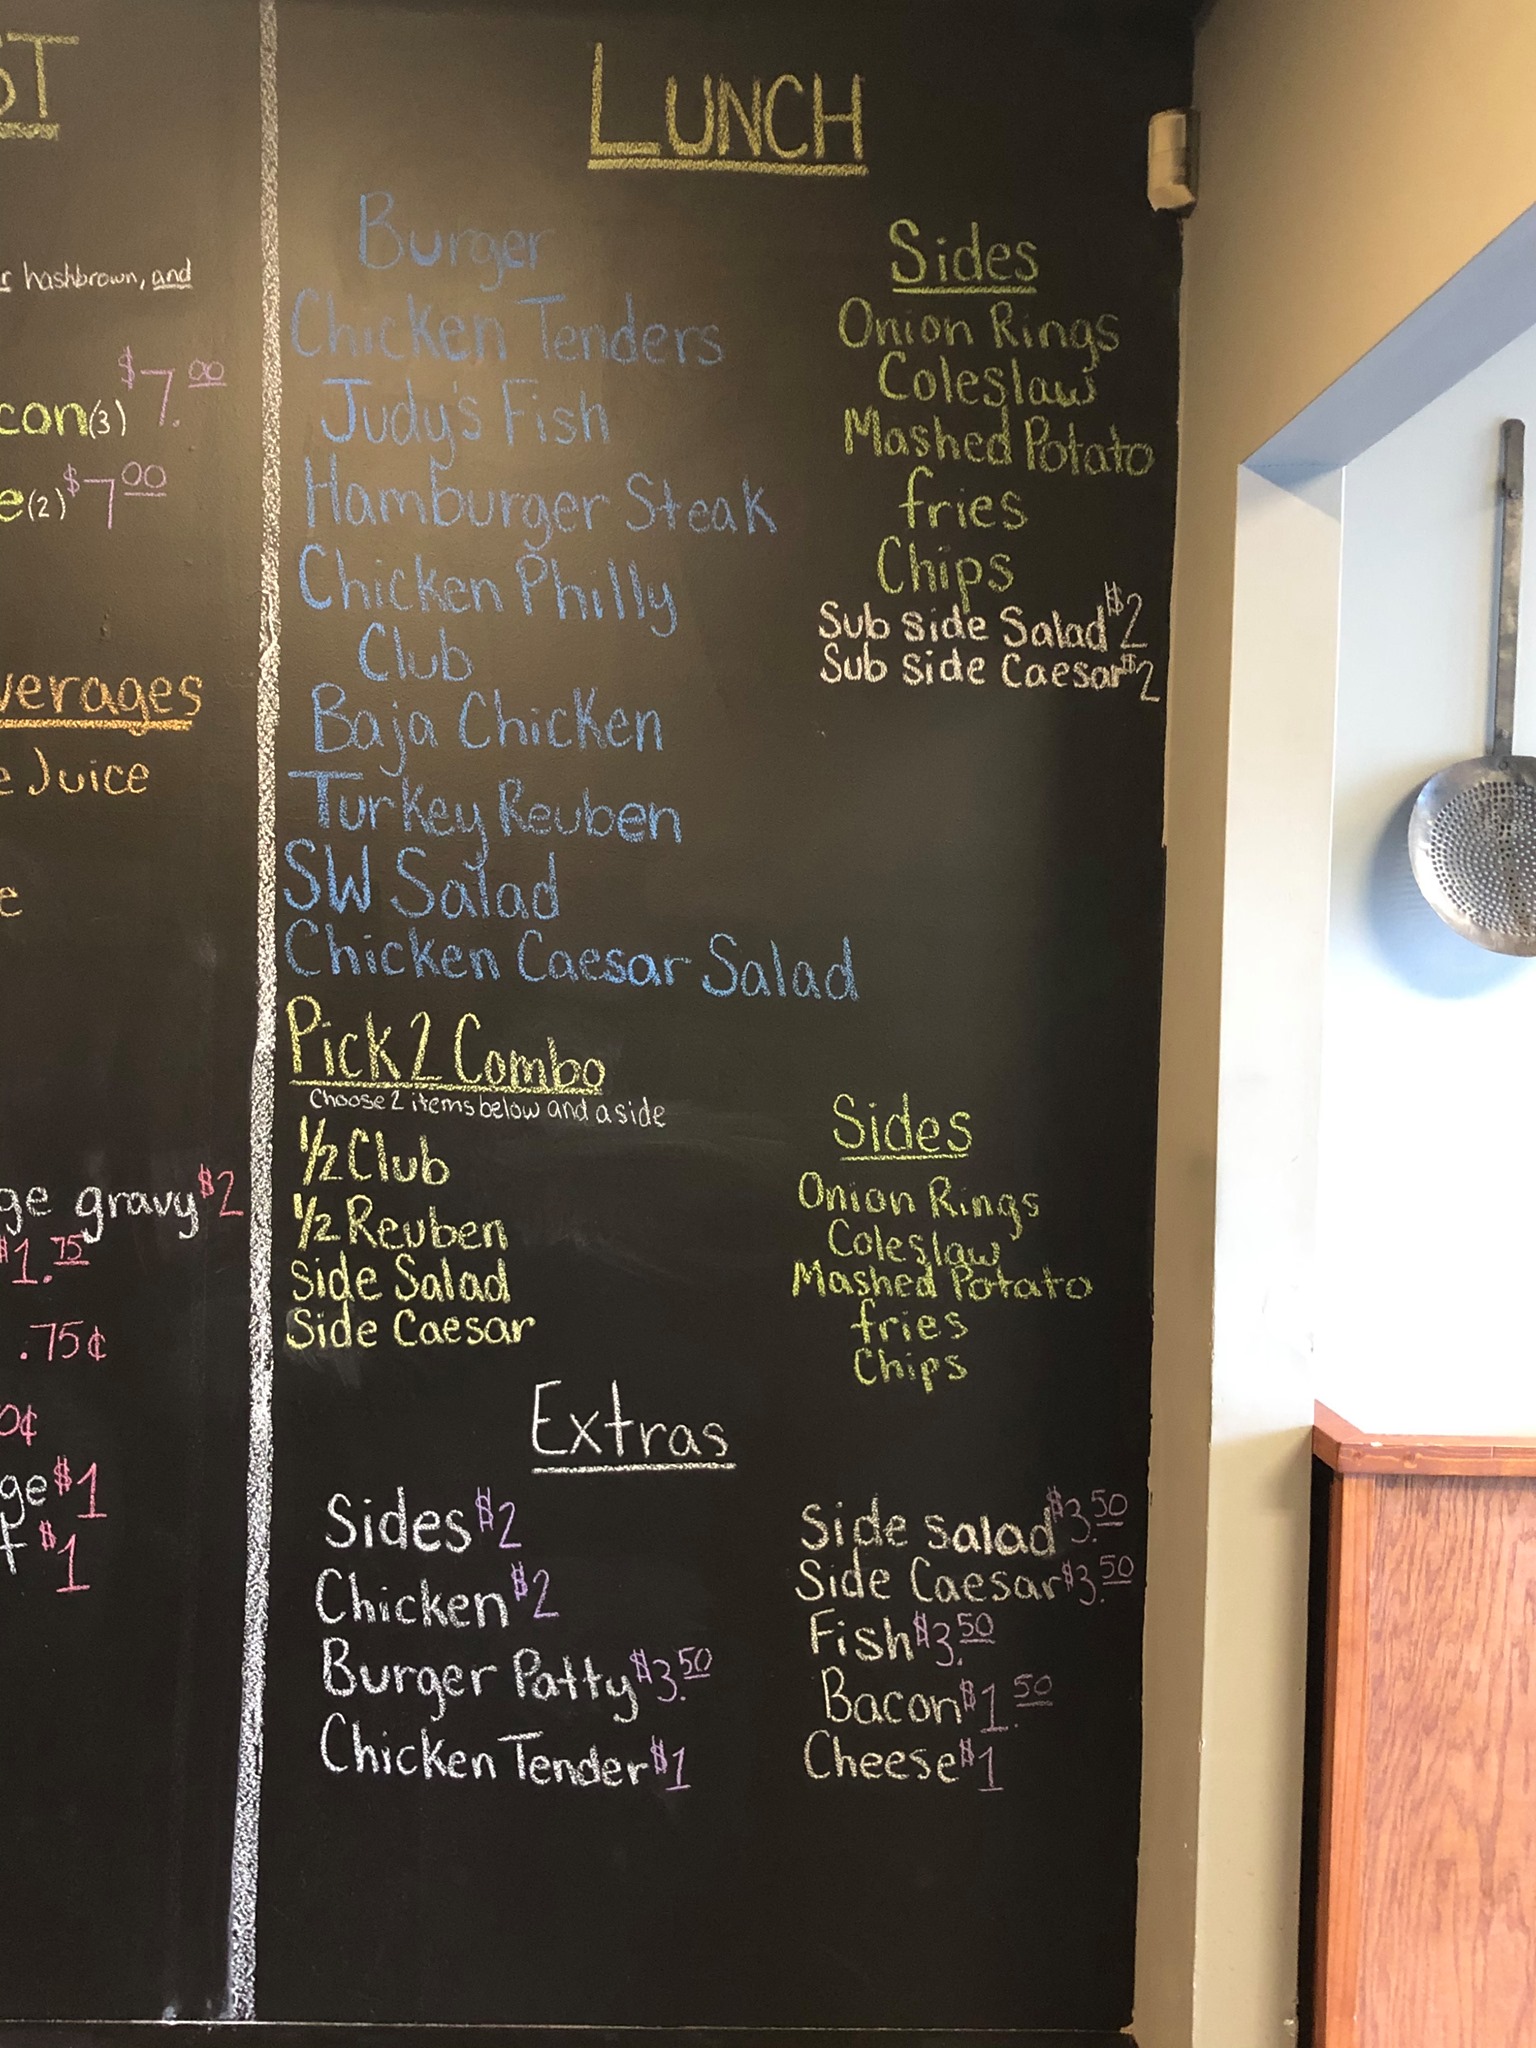 ST
hashbrown, and
$7.00
con(3)
e(2) $7.00
verages
e Juice
e
ge gravy $2
$1.75
.75¢
0¢
ge $1
t $1
LUNCH
Burger
Chicken Tenders
Judy's Fish
Hamburger Steak
Chicken Philly
Club
Baja Chicken
Turkey Reuben
SW Salad
Chicken Caesar Salad
Sides
Onion Rings
Coleslaw
Mashed Potato
fries
Chips
Sub side Salad $2
Sub side Caesar $2
Pick 2 Combo
Choose 2 items below and a side
1/2 Club
1/2 Reuben
Side Salad
Side Caesar
Sides
Onion Rings
Coleslaw
Mashed Potato
fries
Chips
Extras
Sides $2
Chicken $2
Burger Patty $3.50
Chicken Tender $1
Side salad $3.50
Side Caesar $3.50
Fish $3.50
Bacon $1.50
Cheese $1